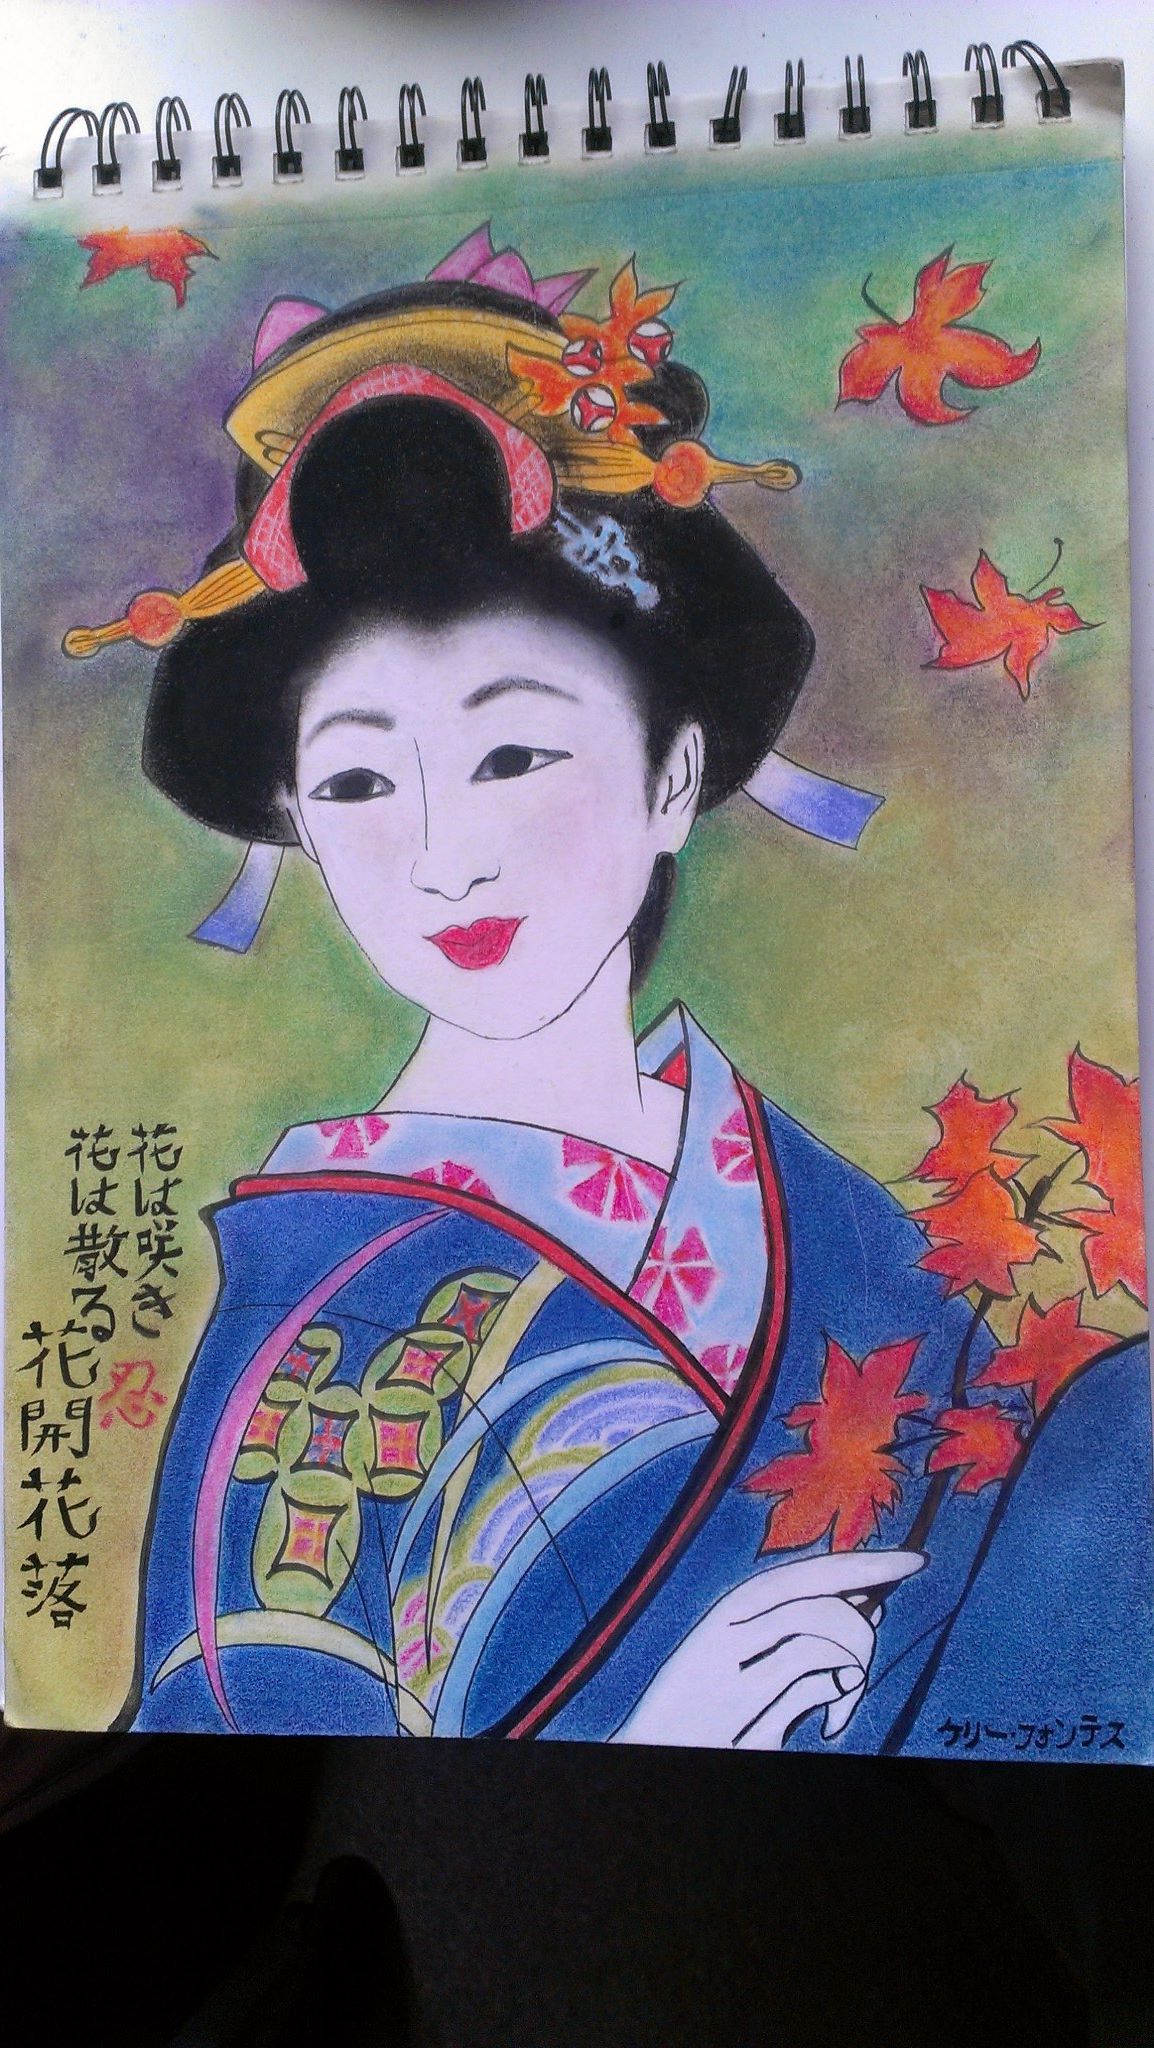 花は咲き
花は散る
花開花落
忍
ケリー・フォンテス